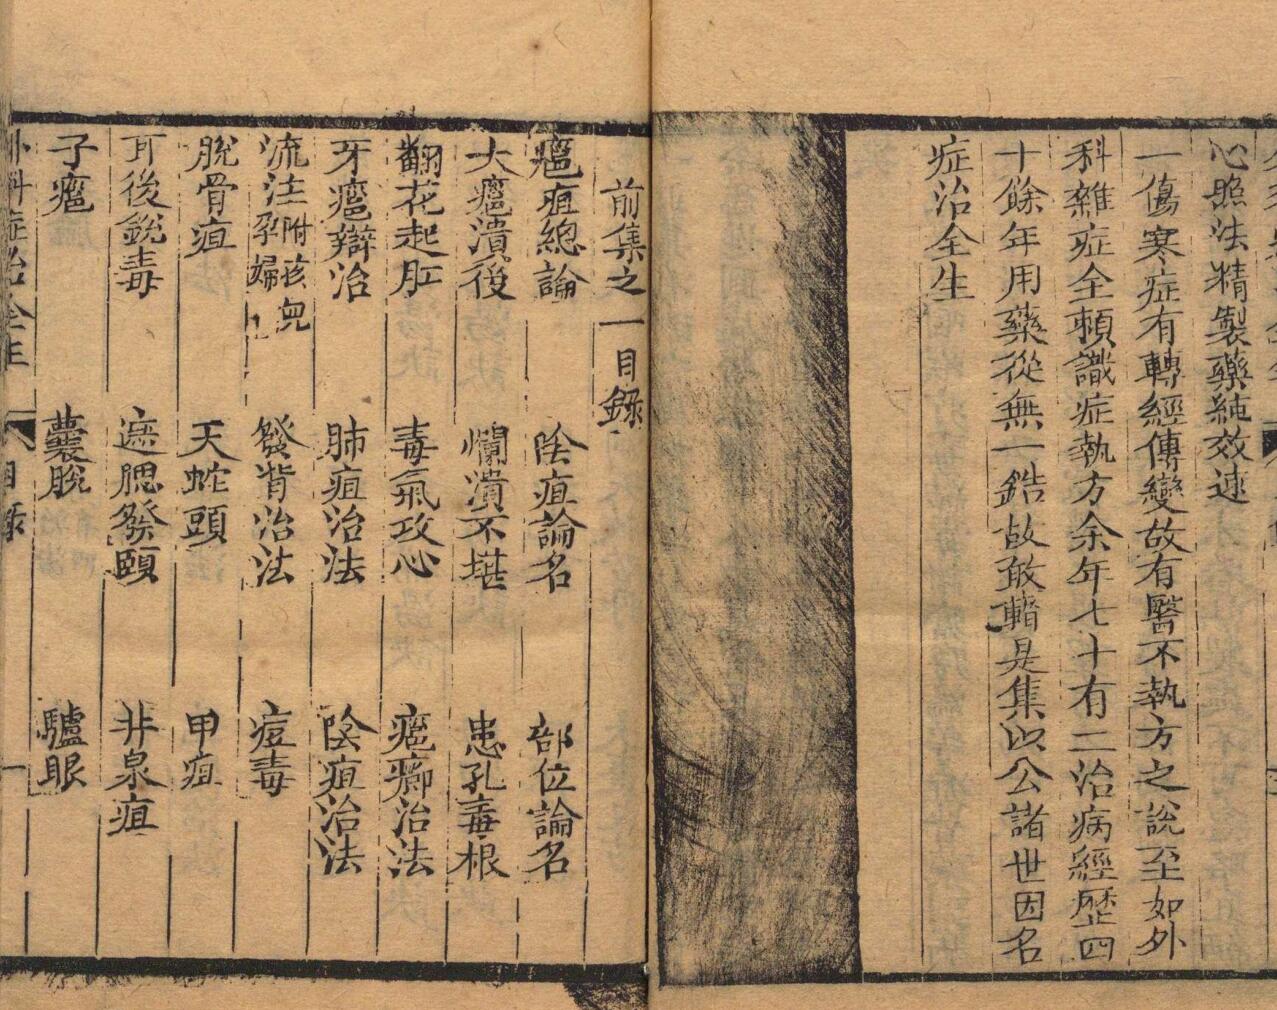 心照法精製藥純效速
一傷寒症有轉經傳變故有醫不執方之說至如外
科雜症全頼識症執方余年七十有二治病經歷四
十餘年用藥從無一錯故敢輯是集以公諸世因名
症治全生
前集之一目錄
癰疽總論 陰疽論名 部位論名
大癰潰後 爛潰不堪 患孔毒根
翻花起肛 毒氣攻心 癰癤治法
牙癰辯治 肺疽治法 陰疽治法
流注附孩兒孕婦 發背治法 痘毒
脫骨疽 天蛇頭 甲疽
耳後銳毒 遮腮發頤 井泉疽
子癰 囊脫 驢眼
外科症治全生 目錄 一